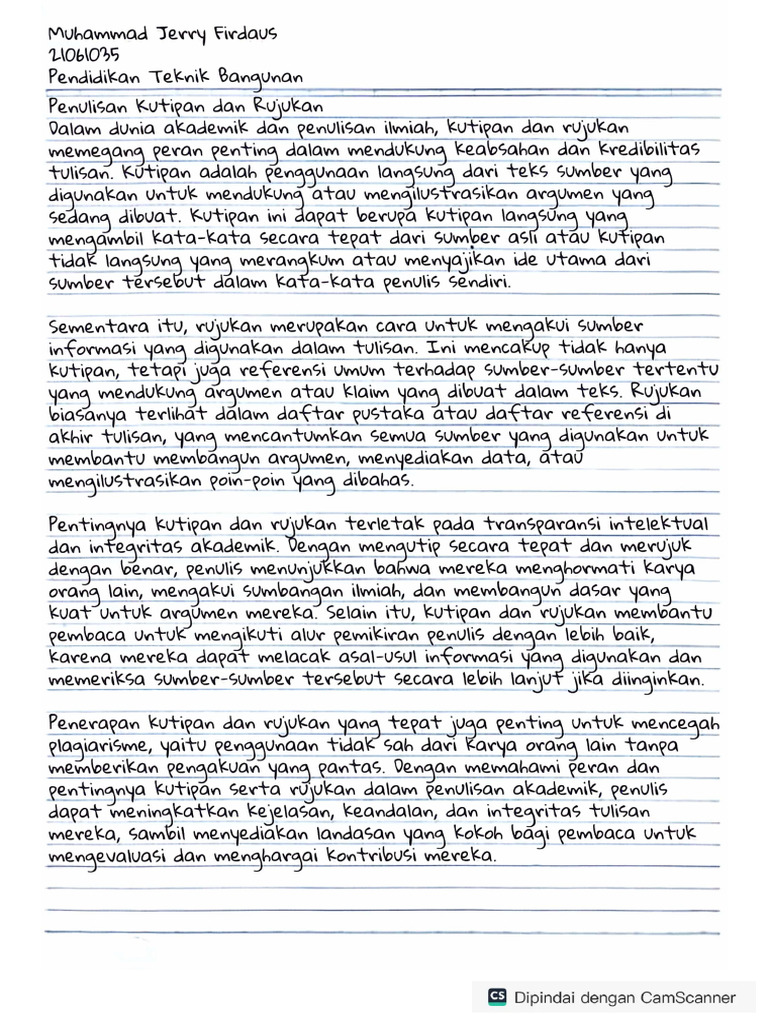 Muhammad Jerry Firdaus
21061035
Pendidikan Teknik Bangunan
Penulisan Kutipan dan Rujukan
Dalam dunia akademik dan penulisan ilmiah, kutipan dan rujukan
memegang peran penting dalam mendukung keabsahan dan kredibilitas
tulisan. Kutipan adalah penggunaan langsung dari teks sumber yang
digunakan untuk mendukung atau mengilustrasikan argumen yang
sedang dibuat. Kutipan ini dapat berupa kutipan langsung yang
mengambil kata-kata secara tepat dari sumber asli atau kutipan
tidak langsung yang merangkum atau menyajikan ide utama dari
sumber tersebut dalam kata-kata penulis sendiri.
Sementara itu, rujukan merupakan cara untuk mengakui sumber
informasi yang digunakan dalam tulisan. Ini mencakup tidak hanya
kutipan, tetapi juga referensi umum terhadap sumber-sumber tertentu
yang mendukung argumen atau klaim yang dibuat dalam teks. Rujukan
biasanya terlihat dalam daftar pustaka atau daftar referensi di
akhir tulisan, yang mencantumkan semua sumber yang digunakan untuk
membantu membangun argumen, menyediakan data, atau
mengilustrasikan poin-poin yang dibahas.
Pentingnya kutipan dan rujukan terletak pada transparansi intelektual
dan integritas akademik. Dengan mengutip secara tepat dan merujuk
dengan benar, penulis menunjukkan bahwa mereka menghormati karya
orang lain, mengakui sumbangan ilmiah, dan membangun dasar yang
kuat untuk argumen mereka. Selain itu, kutipan dan rujukan membantu
pembaca untuk mengikuti alur pemikiran penulis dengan lebih baik,
karena mereka dapat melacak asal-usul informasi yang digunakan dan
memeriksa sumber-sumber tersebut secara lebih lanjut jika diinginkan.
Penerapan kutipan dan rujukan yang tepat juga penting untuk mencegah
plagiarisme, yaitu penggunaan tidak sah dari karya orang lain tanpa
memberikan pengakuan yang pantas. Dengan memahami peran dan
pentingnya kutipan serta rujukan dalam penulisan akademik, penulis
dapat meningkatkan kejelasan, keandalan, dan integritas tulisan
mereka, sambil menyediakan landasan yang kokoh bagi pembaca untuk
mengevaluasi dan menghargai kontribusi mereka.
CS Dipindai dengan CamScanner